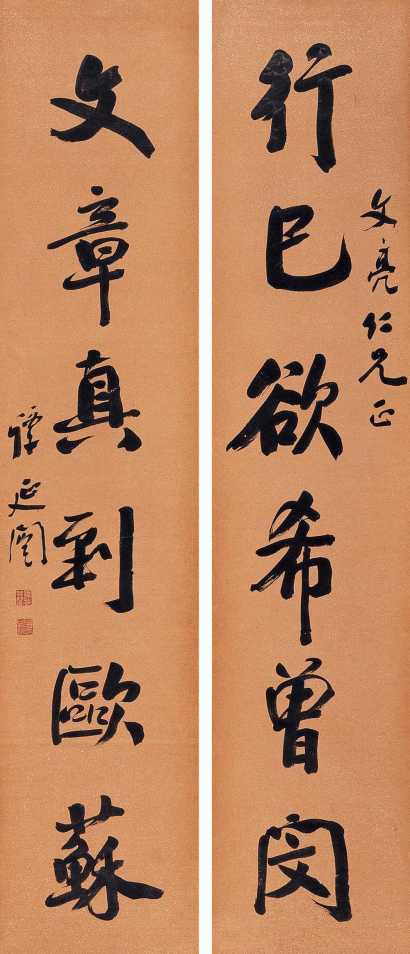 文亮仁兄正
行己欲希曾閔
文章真到歐蘇
譚延闓